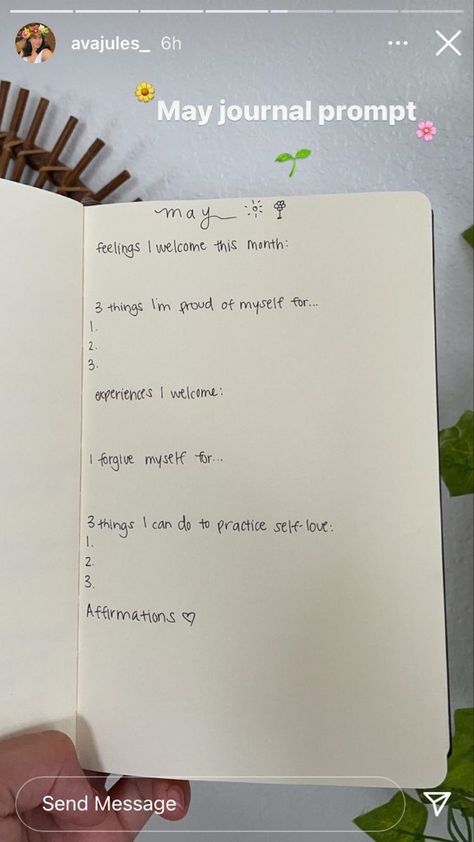 avajules_ 6h
May journal prompt
may
feelings I welcome this month:
3 things I'm proud of myself for...
1.
2.
3.
experiences I welcome:
I forgive myself for...
3 things I can do to practice self-love:
1.
2.
3.
Affirmations ♡
Send Message